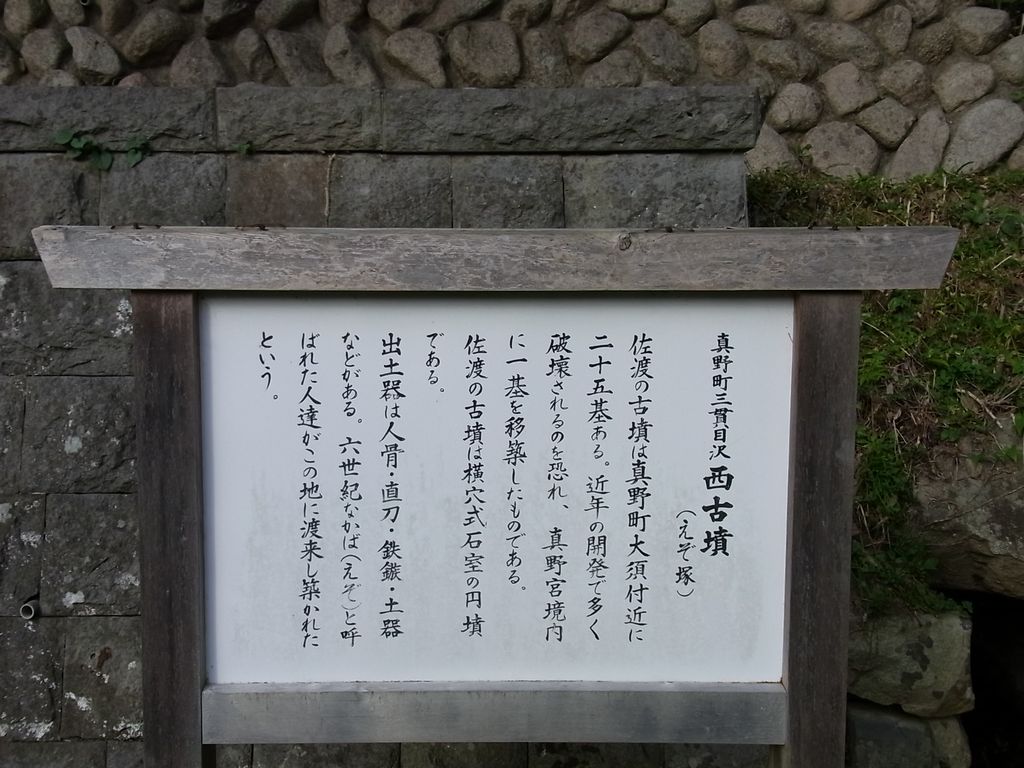 真野町三貫目沢 西古墳
（えぞ塚）
佐渡の古墳は真野町大須付近に
二十五基ある。近年の開発で多く
破壊されるのを恐れ、真野宮境内
に一基を移築したものである。
佐渡の古墳は横穴式石室の円墳
である。
出土器は人骨・直刀・鉄鏃・土器
などがある。六世紀なかば（えぞ）と呼
ばれた人達がこの地に渡来し築かれた
という。